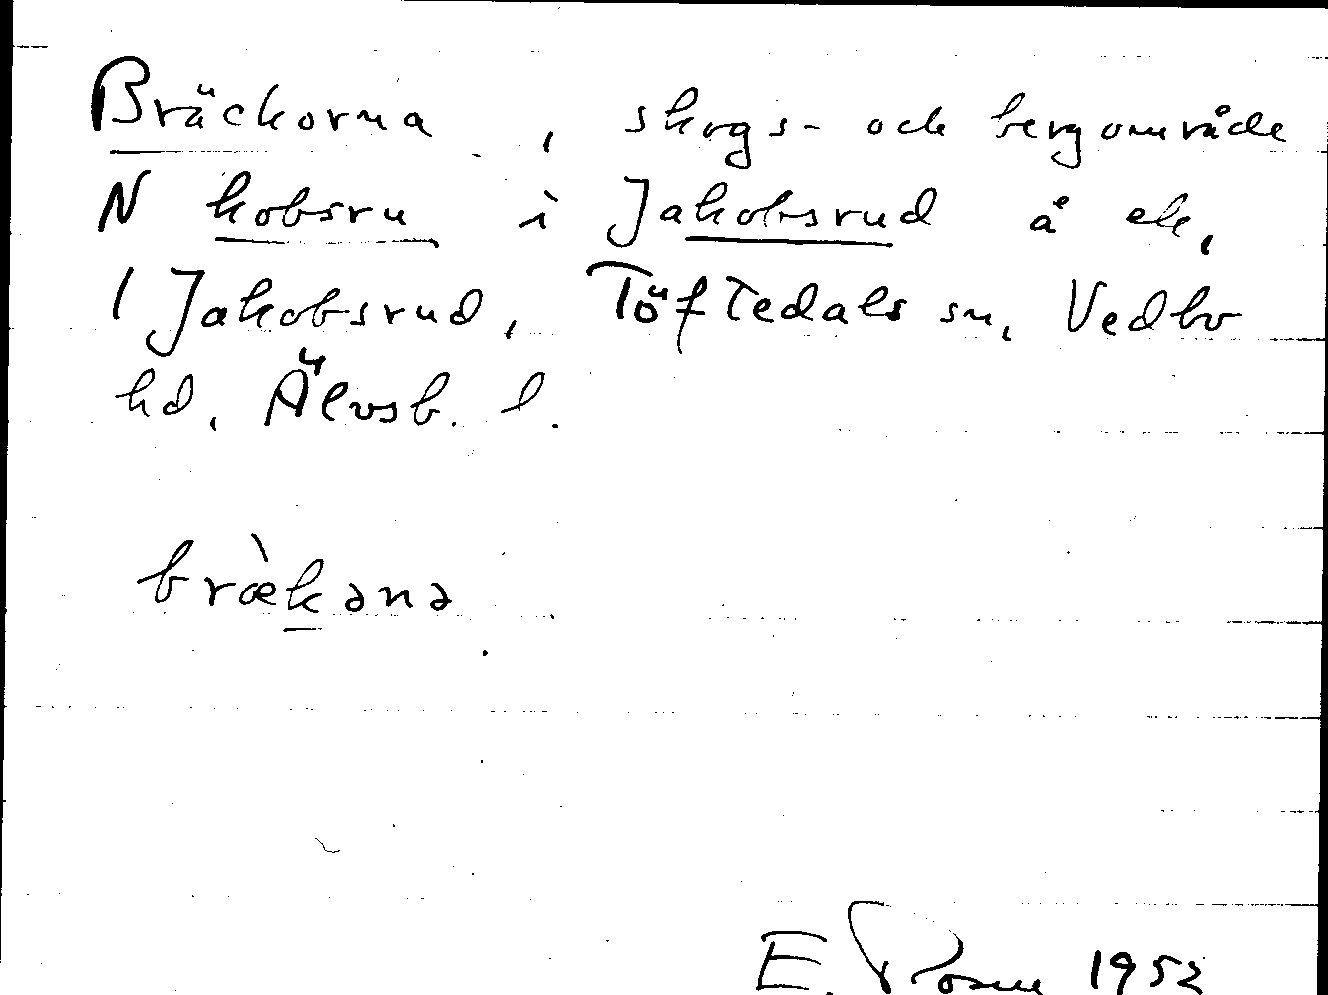 Bräckorna, skogs- och bergområde
N kobsru i Jakobsrud å ek,
1 Jakobsrud, Töftedals sn, Vedbo
hd, Älvsb. l.
bræ̀kənə
E. Rosm 1952